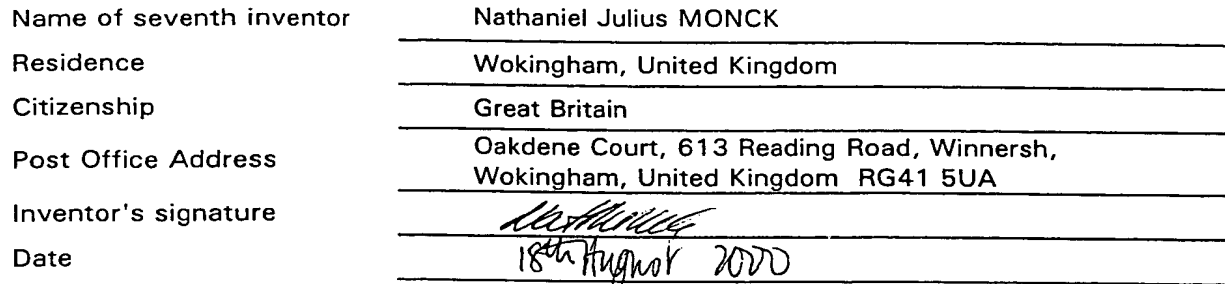 Name of seventh inventor Nathaniel Julius MONCK
Residence Wokingham, United Kingdom
Citizenship Great Britain
Post Office Address Oakdene Court, 613 Reading Road, Winnersh,
Wokingham, United Kingdom RG41 5UA
Inventor's signature
Date 18th August 2000